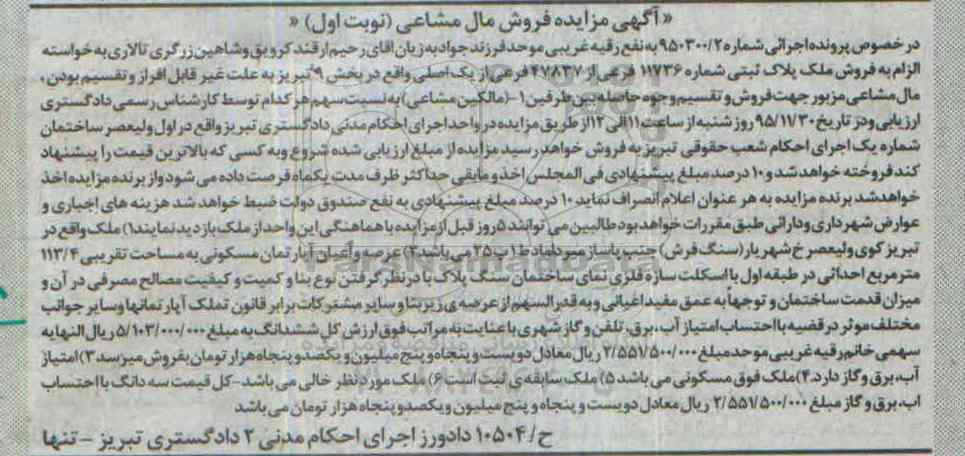 « آگهی مزایده فروش مال مشاعی (نوبت اول) «
در خصوص پرونده اجرائی شماره ۹۵۰۳۰۰/۲ به نفع رقیه غریبی موحد فرزند جواد به زیان اقای رحیم ارقند کرویق وشاهین زرگری تالاری به خواسته
الزام به فروش ملک پلاک ثبتی شماره ۱۱۷۳۶ فرعی از ۴۷۸۳۷ فرعی از یک اصلی واقع در بخش ۹ تبریز به علت غیر قابل افراز و تقسیم بودن ،
مال مشاعی مزبور جهت فروش و تقسیم وجوه حاصله بین طرفین ۱-(مالکین مشاعی) به نسبت سهم هر کدام توسط کارشناس رسمی دادگستری
ارزیابی ودز تاریخ ۹۵/۱۱/۳۰ روز شنبه از ساعت ۱۱ الی ۱۲ از طریق مزایده در واحد اجرای احکام مدنی دادگستری تبریز واقع در اول ولیعصر ساختمان
شماره یک اجرای احکام شعب حقوقی تبریز به فروش خواهد رسید مزایده از مبلغ ارزیابی شده شروع وبه کسی که بالاترین قیمت را پیشنهاد
کند فروخته خواهد شد و ۱۰ درصد مبلغ پیشنهادی فی المجلس اخذ و مابقی حداکثر ظرف مدت یکماه فرصت داده می شود واز برنده مزایده اخذ
خواهد شد برنده مزایده به هر عنوان اعلام انصراف نماید ۱۰ درصد مبلغ پیشنهادی به نفع صندوق دولت ضبط خواهد شد هزینه های اجباری و
عوارض شهرداری ودارائی طبق مقررات خواهد بود طالبین می توانند ۵ روز قبل از مزایده با هماهنگی این واحد از ملک بازدید نمایند ۱) ملک واقع در
تبریز کوی ولیعصر خ شهریار (سنگ فرش) جنب پاساژ میرداماد ط ۱ پ ۲۵ می باشد ۲) عرصه واعیان آپارتمان مسکونی به مساحت تقریبی ۱۱۳/۴
متر مربع احداثی در طبقه اول با اسکلت سازه فلزی نمای ساختمان سنگ پلاک با در نظر گرفتن نوع بنا و کمیت و کیفیت مصالح مصرفی در آن و
میزان قدمت ساختمان و توجهاً به عمق مفید اعیانی و به قدر السهم از عرصه ی زیر بنا و سایر مشترکات برابر قانون تملک آپارتمانها وسایر جوانب
مختلف موثر در قضیه با احتساب امتیاز آب، برق، تلفن و گاز شهری با عنایت به مراتب فوق ارزش کل ششدانگ به مبلغ ۵/۱۰۳/۰۰۰/۰۰۰ ریال النهایه
سهمی خانم رقیه غریبی موحد مبلغ ۲/۵۵۱/۵۰۰/۰۰۰ ریال معادل دویست و پنجاه و پنج میلیون و یکصدو پنجاه هزار تومان بفروش میرسد ۳) امتیاز
آب، برق و گاز دارد. ۴) ملک فوق مسکونی می باشد ۵) ملک سابقه ی ثبت است ۶) ملک مورد نظر خالی می باشد-کل قیمت سه دانگ با احتساب
اب، برق و گاز مبلغ ۲/۵۵۱/۵۰۰/۰۰۰ ریال معادل دویست و پنجاه و پنج میلیون ویکصدو پنجاه هزار تومان می باشد
ح/ ۱۰۵۰۴ دادورز اجرای احکام مدنی ۲ دادگستری تبریز - تنها